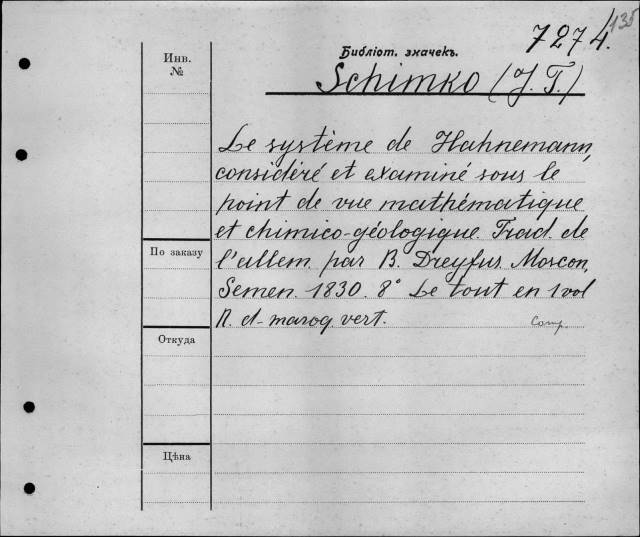 135
7274.
Библіот. значекъ.
Инв.
№
Schimko (J. T.)
Le système de Hahnemann,
considéré et examiné sous le
point de vue mathématique
et chimico-géologique. Trad. de
l'allem. par B. Dreyfus. Moscou,
Semen. 1830. 8° Le tout en 1 vol
По заказу
П. d-maroq. vert.
Comp.
Откуда
Цѣна